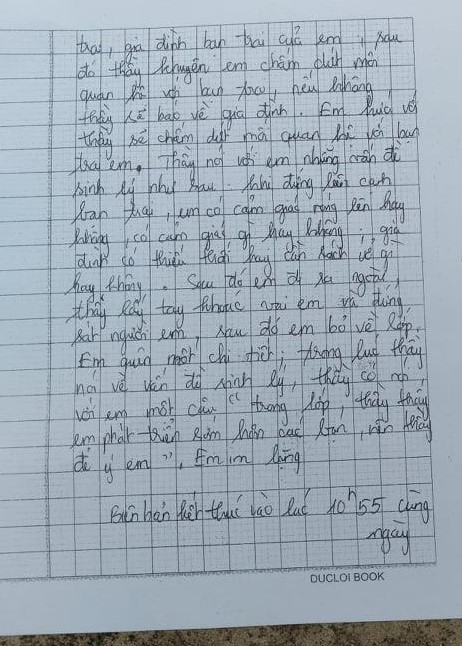 trai, gia đình bạn trai của em, sau
đó thầy khuyên em chấm dứt mối
quan hệ với bạn trai, nếu không
thầy sẽ báo về gia đình. Em hứa với
thầy sẽ chấm dứt mối quan hệ với bạn
trai em. Thầy nói với em những vấn đề
sinh lý như sau: khi đứng gần cạnh
bạn trai, em có cảm giác rạng lên hay
không, có cảm giác gì hay không, gia
đình có thiếu thốn hay cần sách vở gì
hay không. Sau đó em đi ra ngoài,
thầy lấy tay khoác vai em và đứng
sát người em, sau đó em bỏ về lớp.
Em quên một chi tiết; trong lúc thầy
nói về vấn đề sinh lý, thầy có nói
với em một câu "trong lớp, thầy thấy
em phát triển sớm hơn các bạn, nên thầy
để ý em". Em im lặng
Biên bản kết thúc vào lúc 10h55 cùng
ngày
DUCLOI BOOK